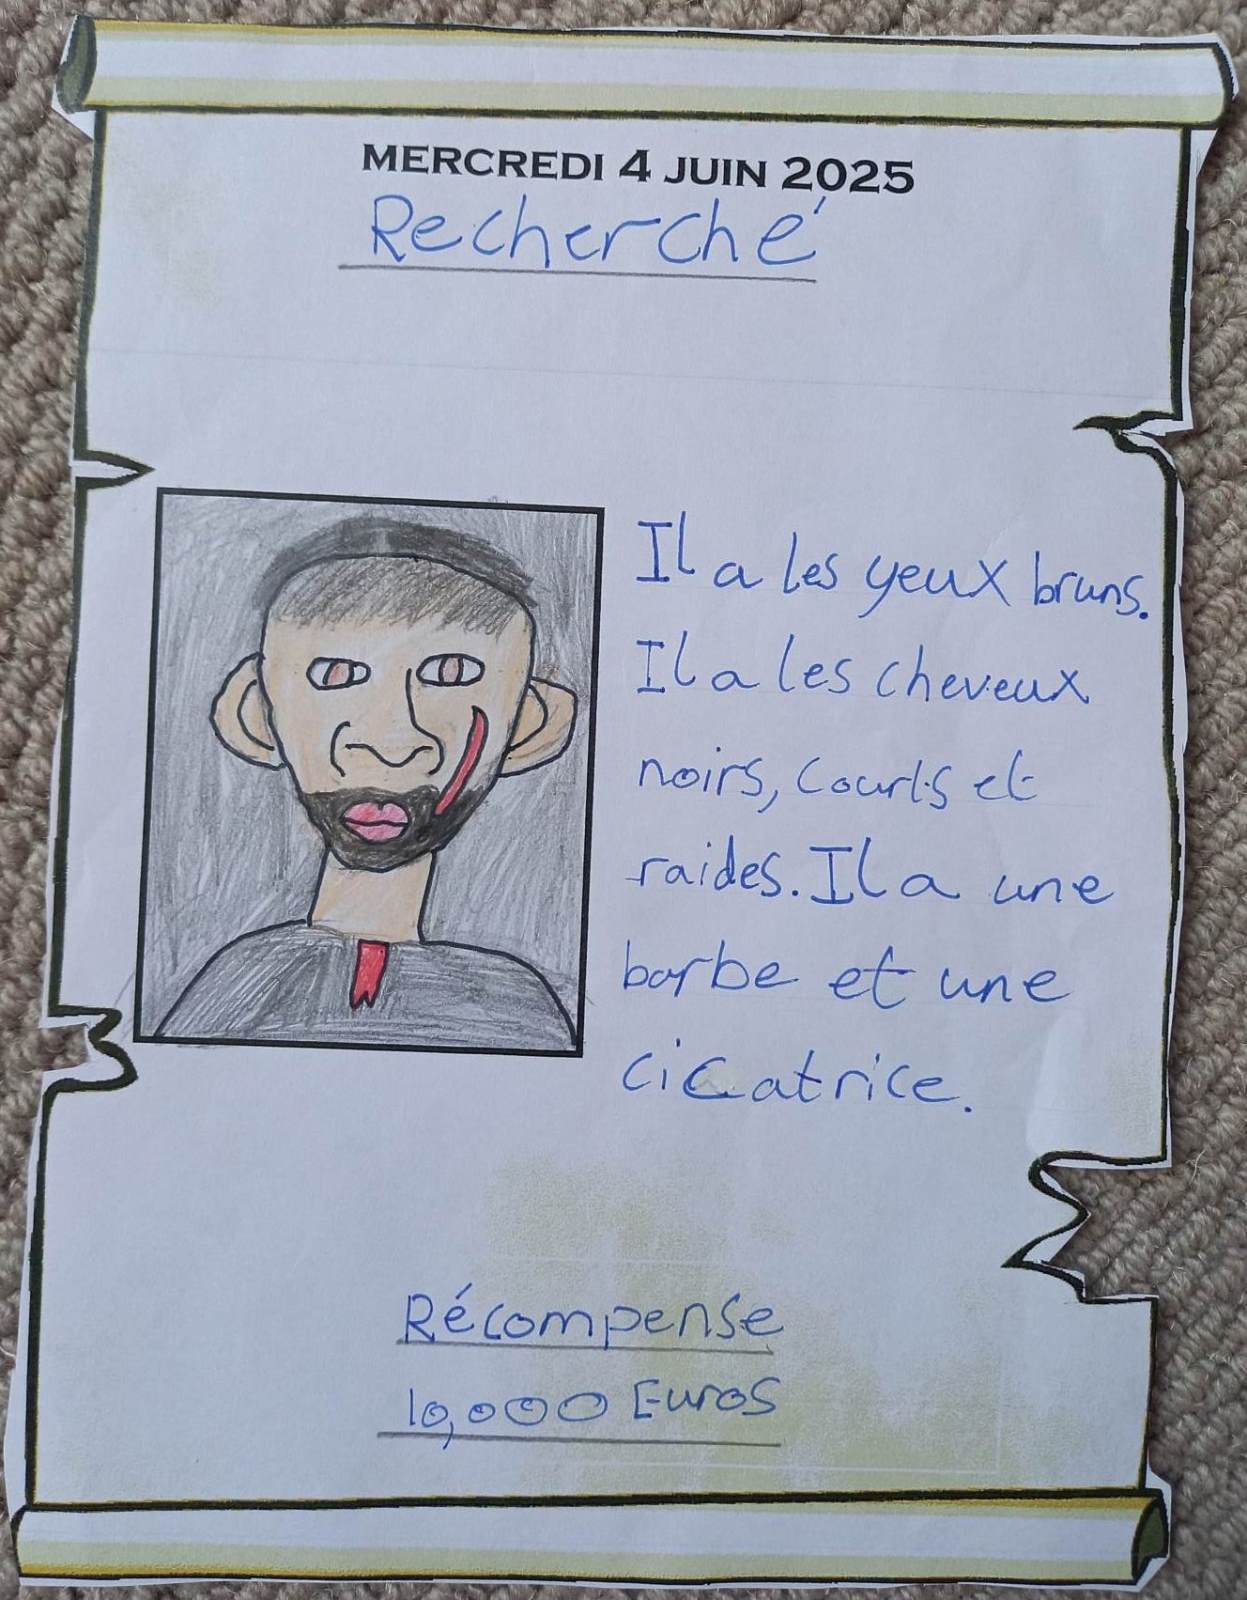 MERCREDI 4 JUIN 2025
Recherché
Il a les yeux bruns.
Il a les cheveux
noirs, Courts et
raides. Il a une
barbe et une
cicatrice.
Récompense
10,000 Euros